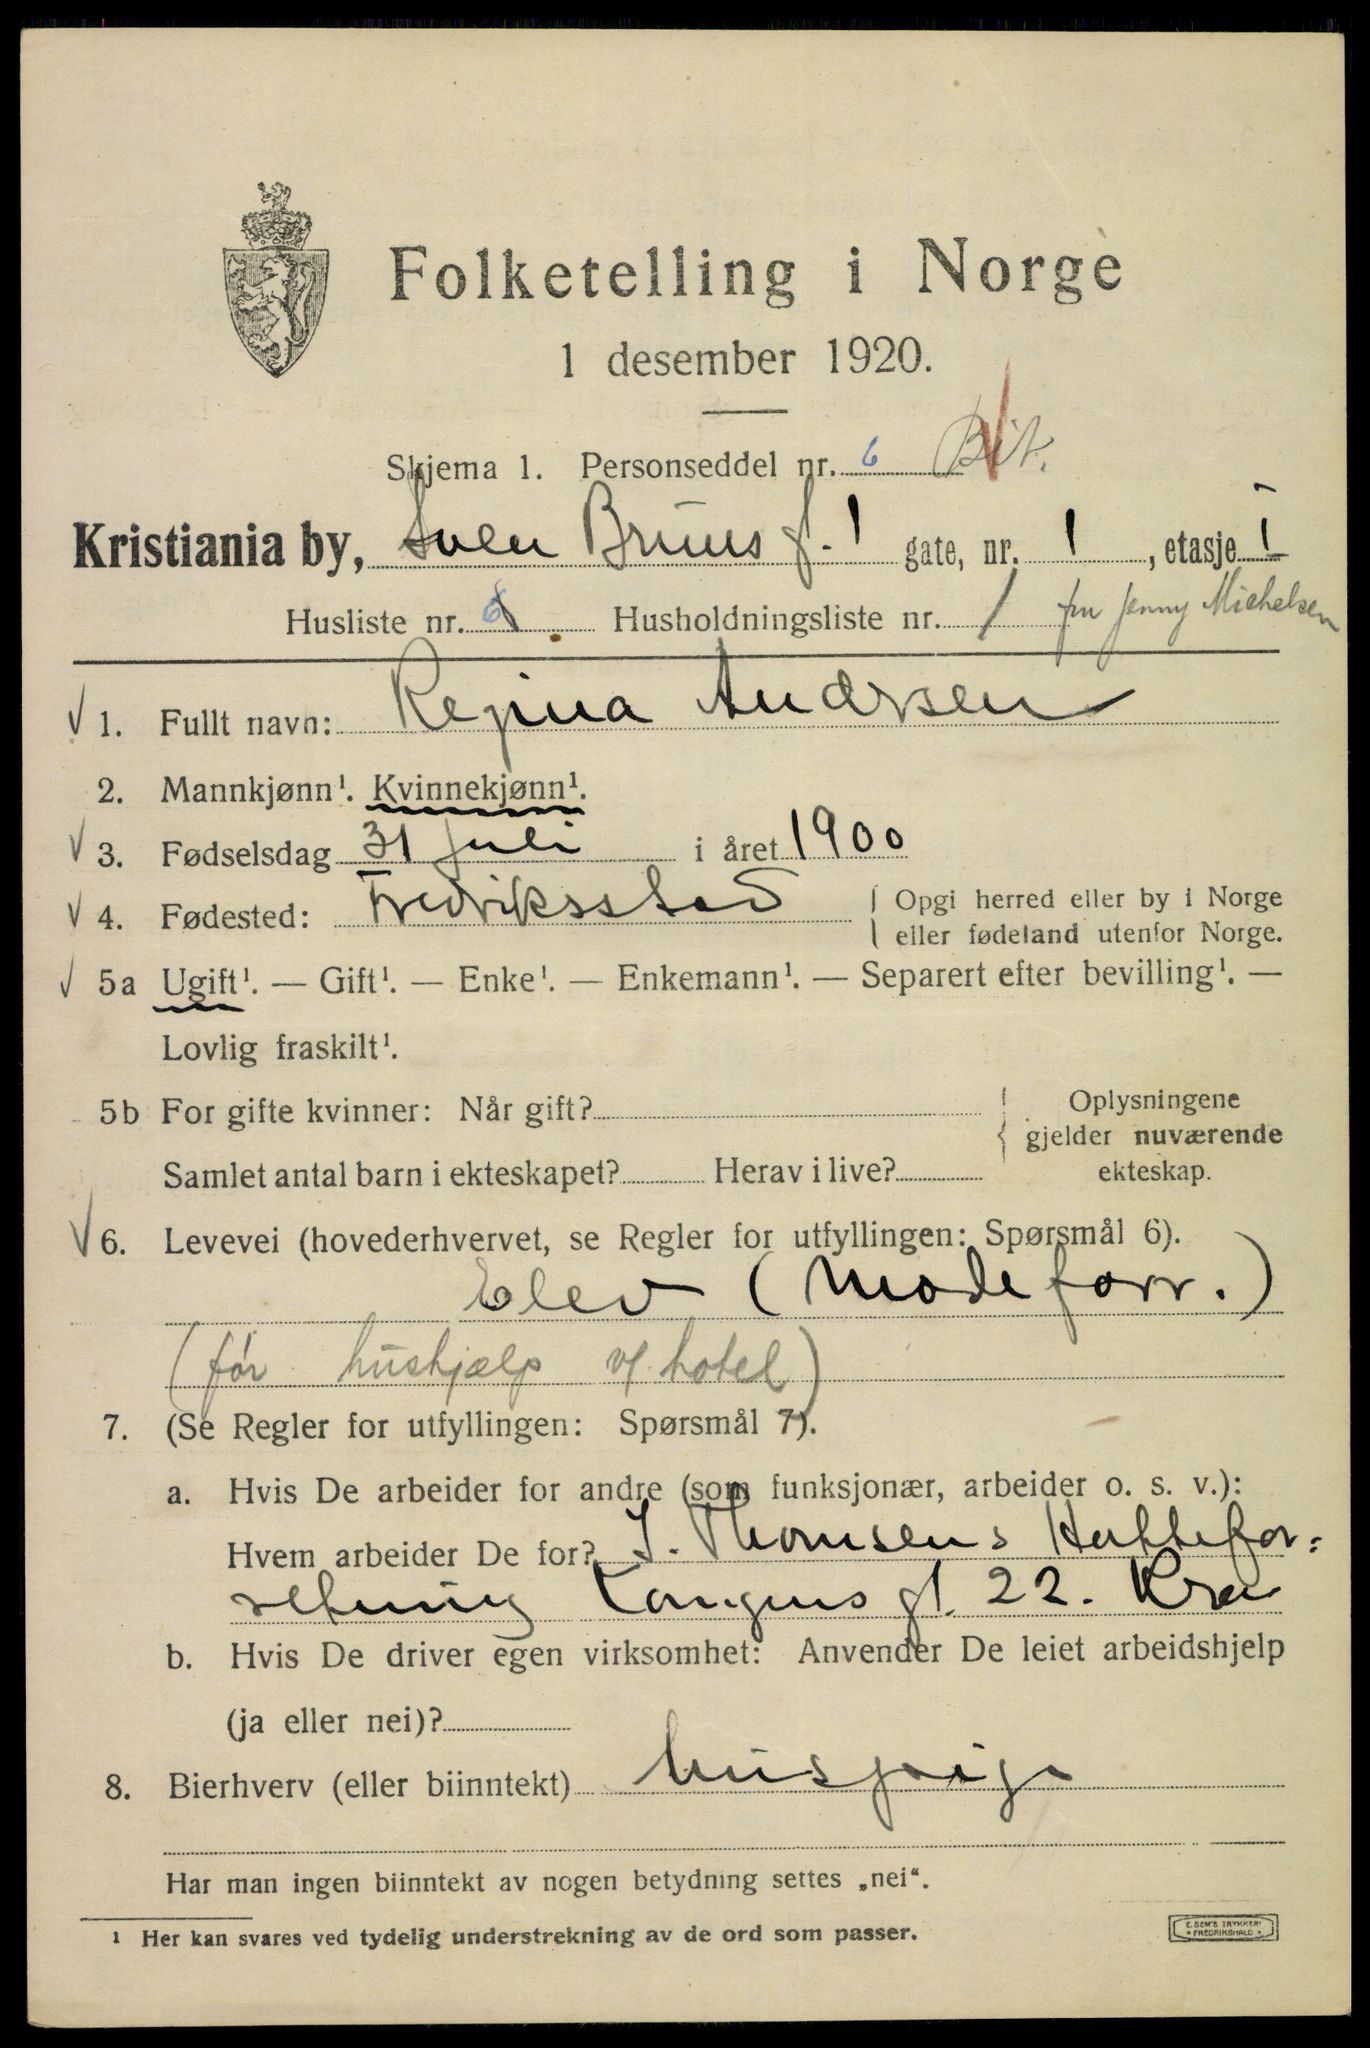 Folketelling i Norge
1 desember 1920.
Skjema 1. Personseddel nr. 6
Kristiania by, Sven Bruns g. 1 gate, nr. 1, etasje I
Husliste nr. 6 Husholdningsliste nr. 1 fru Jenny Michelsen
1. Fullt navn: Regina Andersen
2. Mannkjønn¹. Kvinnekjønn¹.
3. Fødselsdag 31 juli i året 1900
4. Fødested: Fredriksstad { Opgi herred eller by i Norge
eller fødeland utenfor Norge.
5a Ugift¹. — Gift¹. — Enke¹. — Enkemann¹. — Separert efter bevilling¹. —
Lovlig fraskilt¹.
5b For gifte kvinner: Når gift? { Oplysningene
gjelder nuværende
Samlet antal barn i ekteskapet? Herav i live? ekteskap.
6. Levevei (hovederhvervet, se Regler for utfyllingen: Spørsmål 6).
Elev (Modeforr.)
(før hushjælp v/ hotel)
7. (Se Regler for utfyllingen: Spørsmål 7).
a. Hvis De arbeider for andre (som funksjonær, arbeider o. s. v.):
Hvem arbeider De for? J. Thomsens Hattefor=
retning Kongens gt. 22. Kra
b. Hvis De driver egen virksomhet: Anvender De leiet arbeidshjelp
(ja eller nei)?
8. Bierhverv (eller biinntekt)
Har man ingen biinntekt av nogen betydning settes „nei“.
¹ Her kan svares ved tydelig understrekning av de ord som passer.
E. SEM'S TRYKKERI
* FREDRIKSHALD *